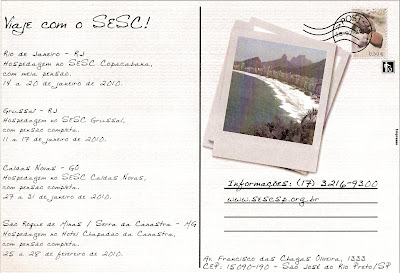 Viaje com o SESC!
Rio de Janeiro - RJ
Hospedagem no SESC Copacabana,
com meia pensão.
14 a 20 de janeiro de 2010.
Grussaí - RJ
Hospedagem no SESC Grussaí,
com pensão completa.
11 a 17 de janeiro de 2010.
Caldas Novas - GO
Hospedagem no SESC Caldas Novas,
com pensão completa.
27 a 31 de janeiro de 2010.
São Roque de Minas / Serra da Canastra - MG
Hospedagem no Hotel Chapadão da Canastra,
com pensão completa.
25 a 28 de fevereiro de 2010.
Informações: (17) 3216-9300
www.sescsp.org.br
Av. Francisco das Chagas Oliveira, 1333
CEP: 15090-190 - São José do Rio Preto/SP